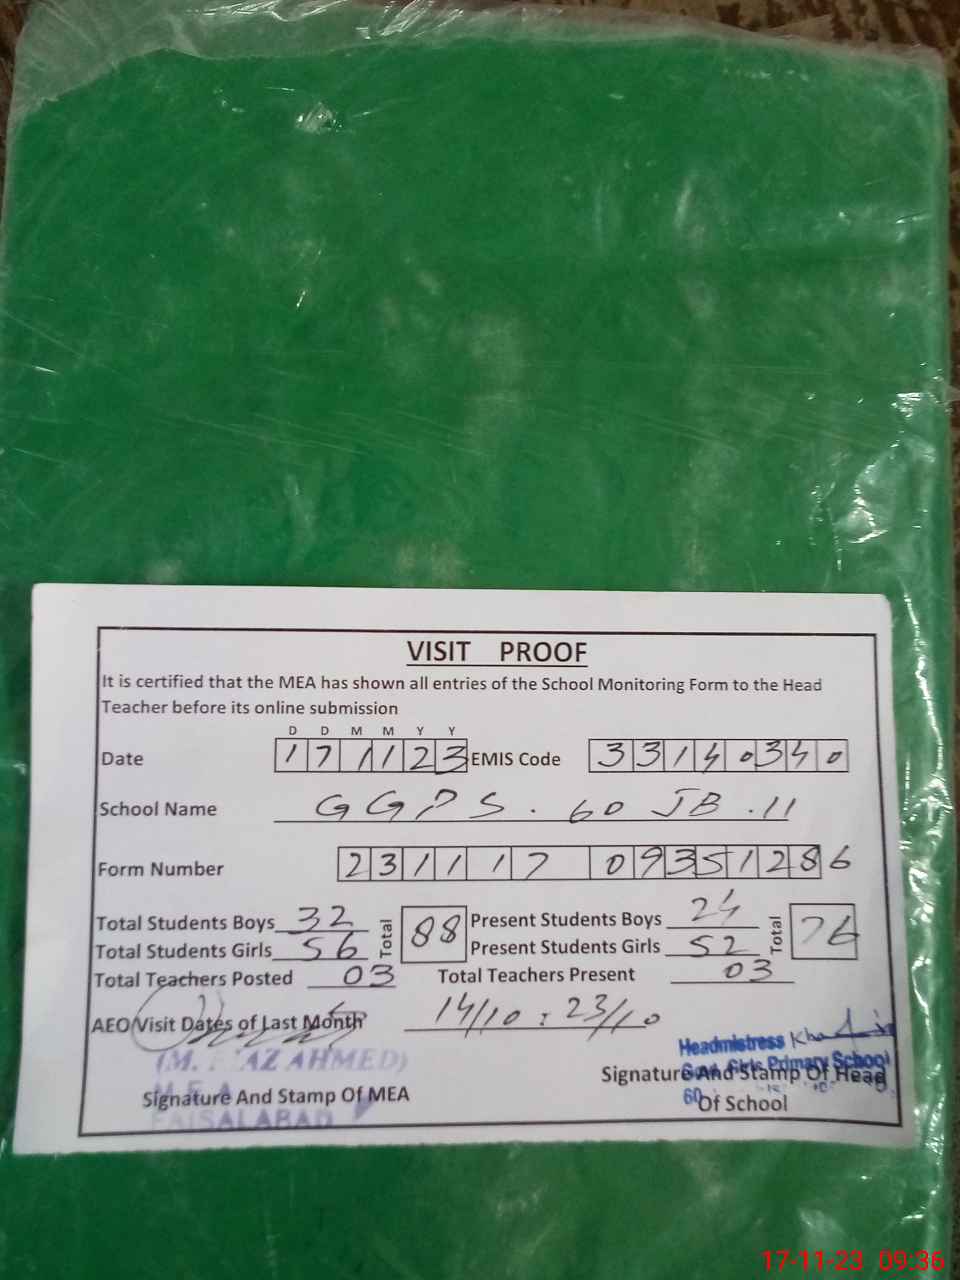 VISIT PROOF
It is certified that the MEA has shown all entries of the School Monitoring Form to the Head
Teacher before its online submission
D D M M Y Y
Date 171123 EMIS Code 33140340
School Name GGPS. 60 JB .11
Form Number 231117 09351286
Total Students Boys 32 Total 88 Present Students Boys 24 Total 76
Total Students Girls 56 Present Students Girls 52
Total Teachers Posted 03 Total Teachers Present 03
AEO Visit Dates of Last Month 14/10 : 23/10
(M. AHMED)
M.E.A
FAISALABAD
Signature And Stamp Of MEA
Headmistress
Govt. Girls Primary School
60
Signature And Stamp Of Head
Of School
17-11-23 09:36